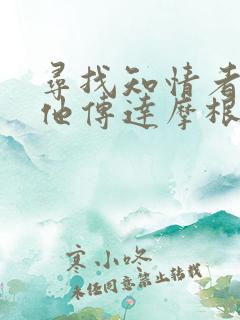 尋找知情者
他傳達摩根
寒小咚
未经同意禁止转载